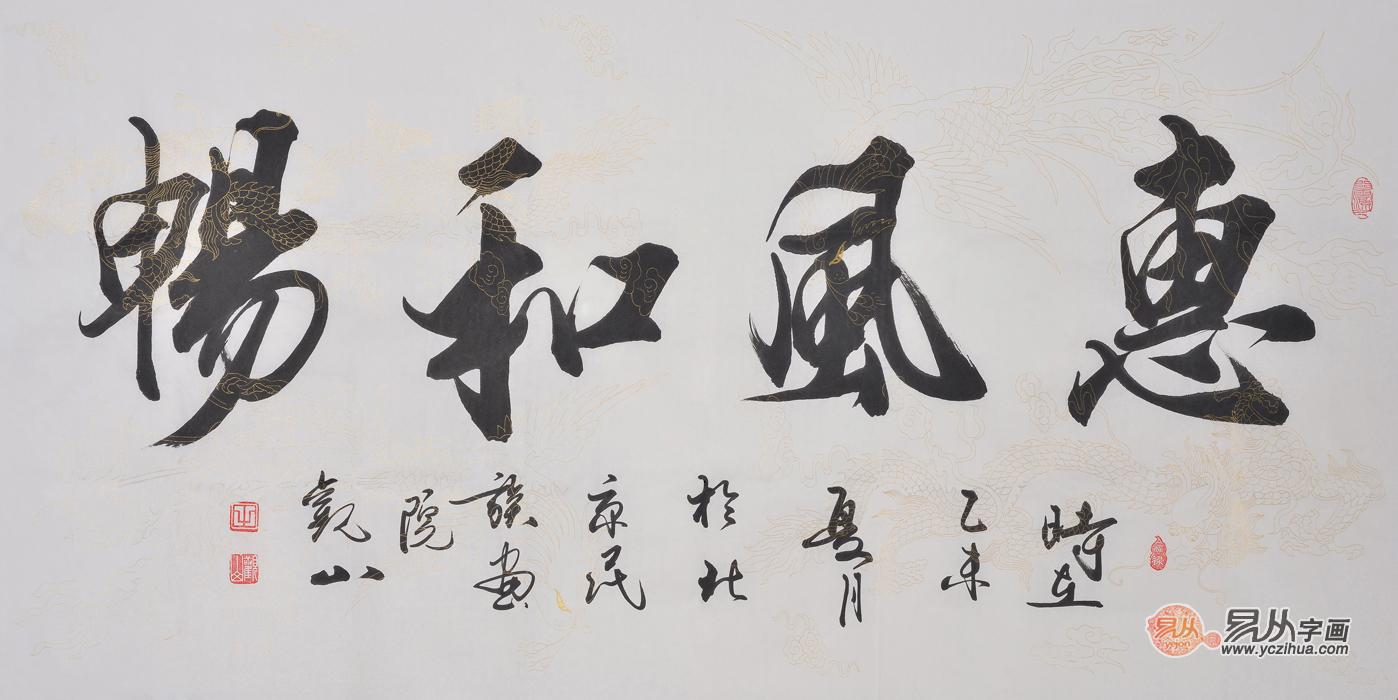 惠風和暢
時在
乙未
夏月
於北
京民
族画
院
觀山
易从
yicon
易从字画
www.yczihua.com